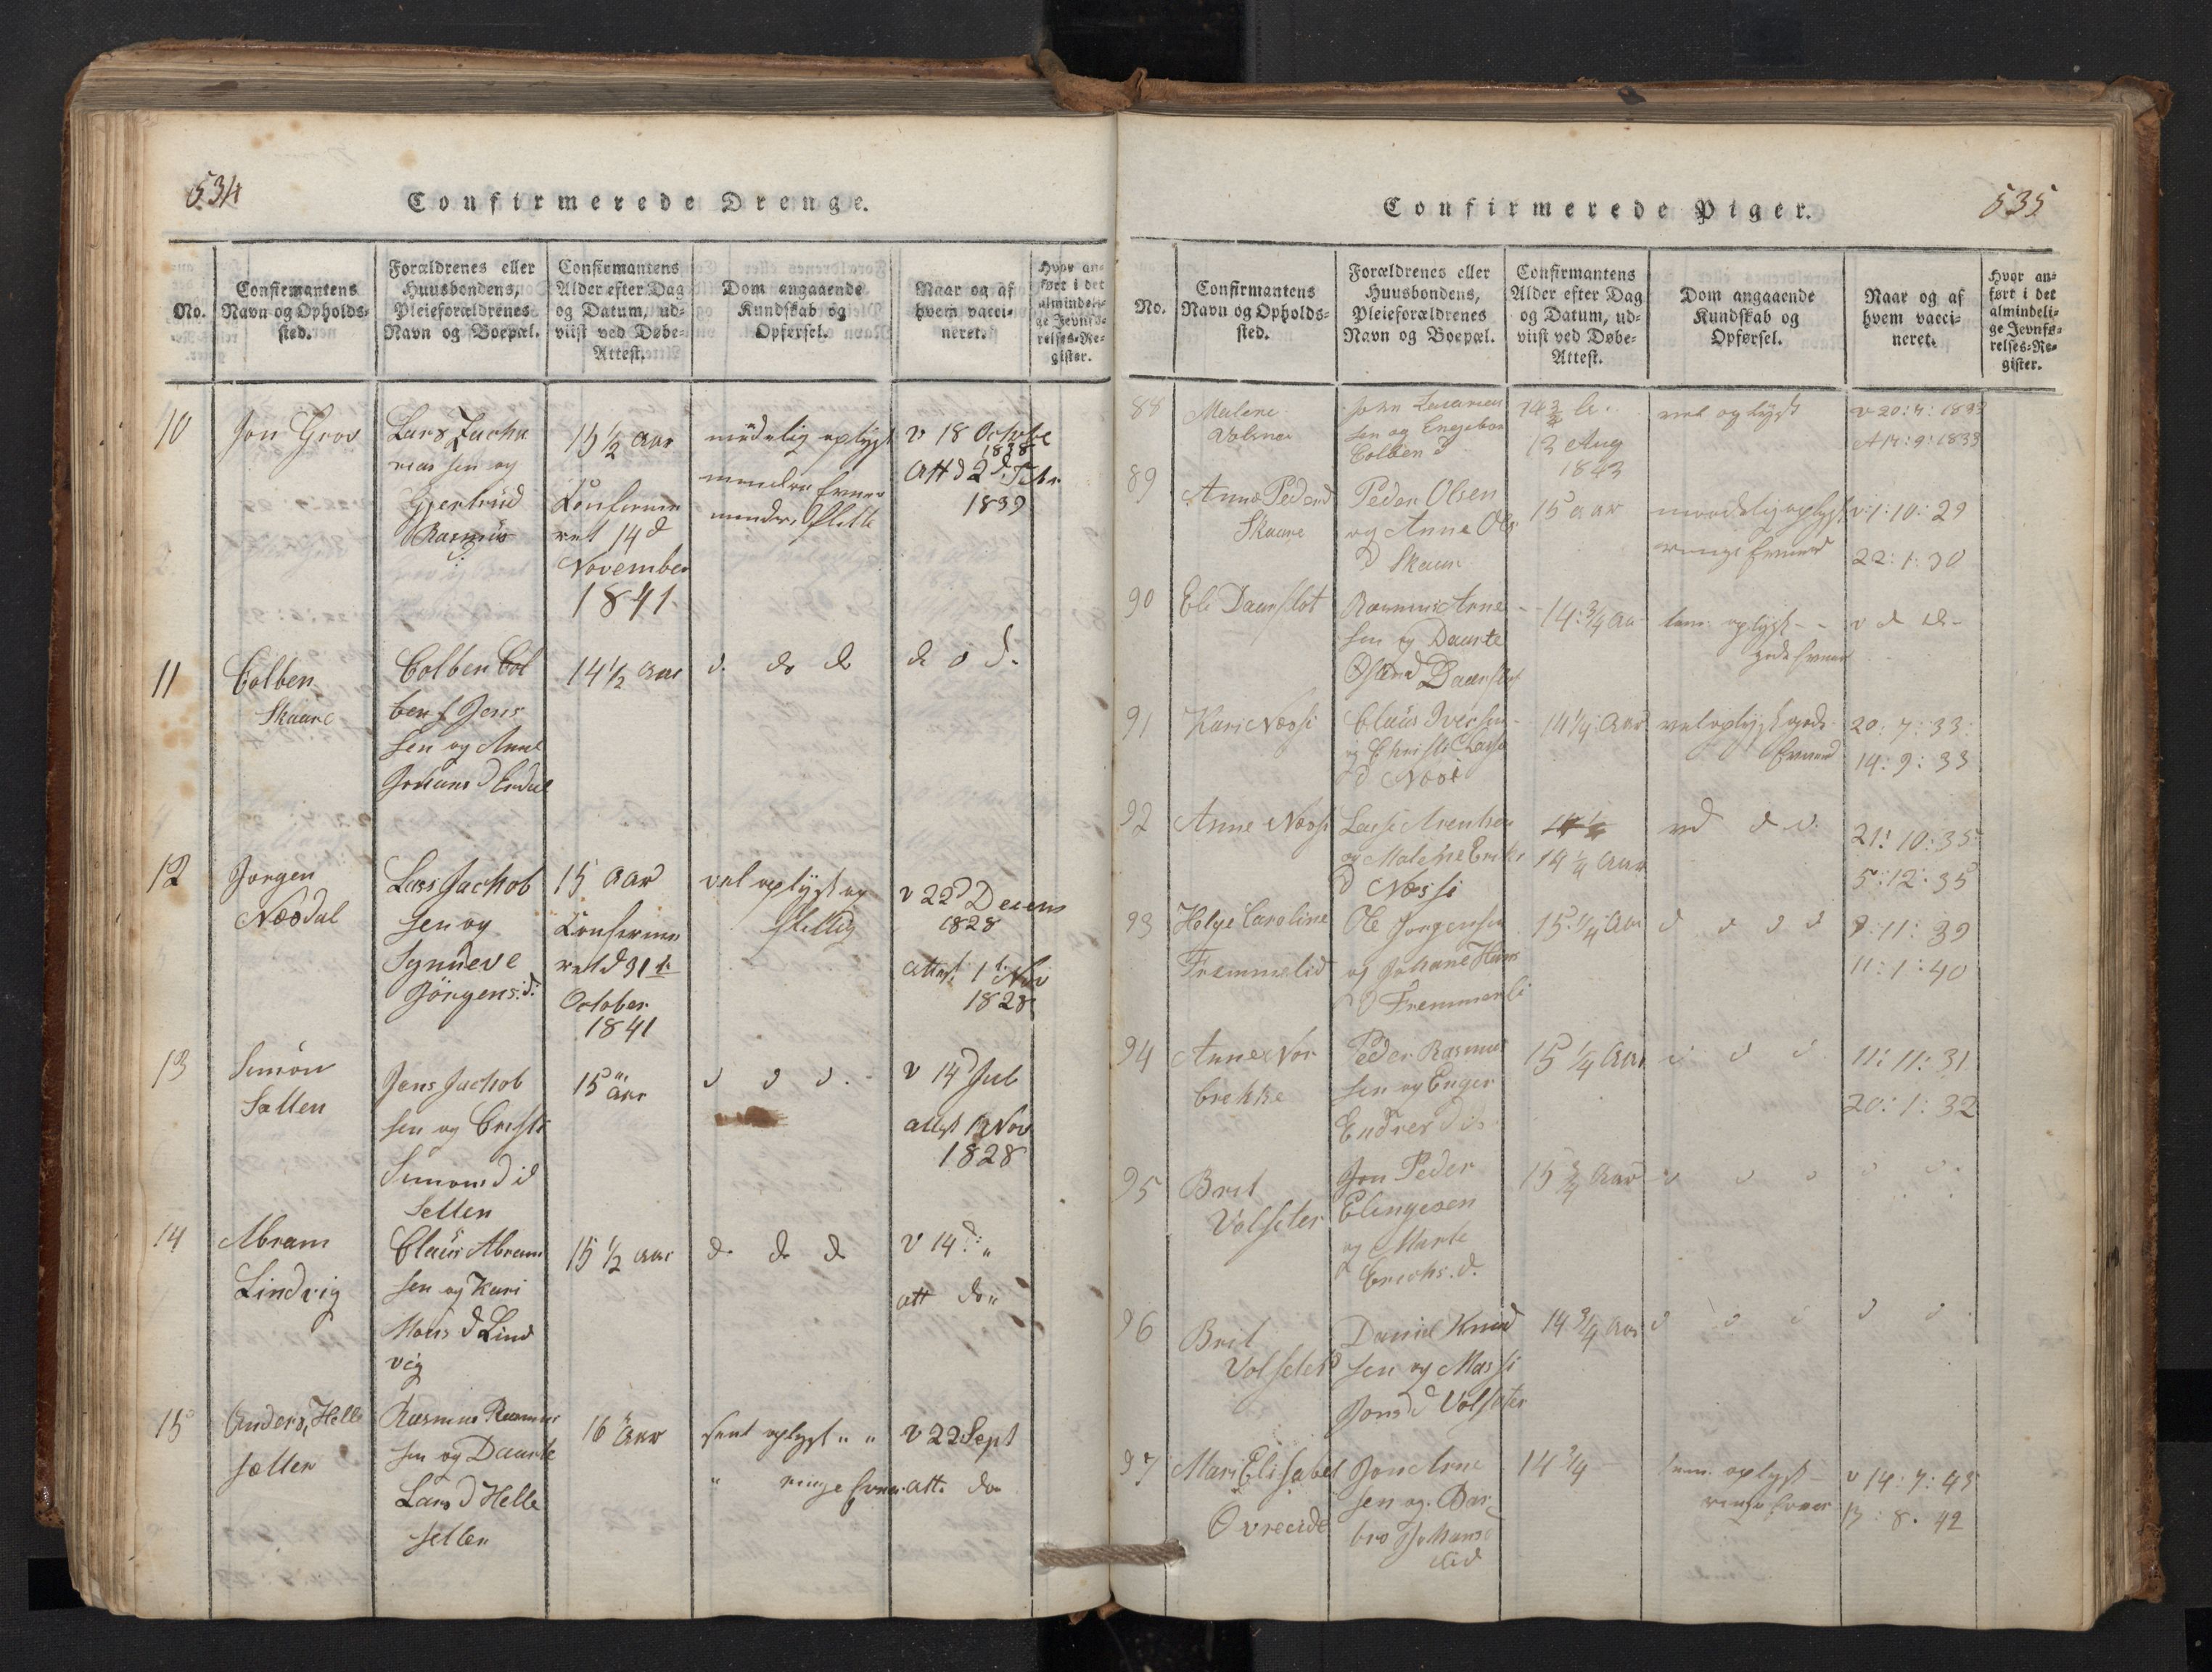 534
Confirmerede Drenge.
No.
Confirmantens
Navn og Opholds-
sted.
Forældrenes eller
Huusbondens,
Pleieforældrenes
Navn og Boepæl.
Confirmantens
Alder efter Dag
og Datum, ud-
viist ved Døbe-
Attest.
Dom angaaende
Kundskab og
Opførsel.
Naar og af
hvem vacci-
neret.
Hvor an-
ført i det
almindeli-
ge Jevnfø-
relses-Re-
gister.
10
Jon Grov
Lars Zacha
rias sen og
Gjertrud
Rasmus
d:
15 1/2 aar
Confirme
ret 14 d
November
1841.
maadelig oplyst
mindre Evner
v 18 Octobr
1838
Att d 2 d Febr
1839
11
Colben
Skaare
Colben Col
ben f Jens
sen og Anne
14 1/2 aar
d. do d
d o d.
12
Jorgen
Næsdal
Lars Jachob
sen og
Synneve
Jörgens. d:
15 aar
Confirme
ret d 31 te
October
1841
vel oplyst og
flittig
v 22 d Decem
1828
attest 1 Nov
1828
13
Simon
Sætten
Jens Jachob
sen og Cristi
Simons d
Setten
15 aar
d d d.
v 14 Jul
attest 12 Nov
1828
14
Abram
Lindvig
Claus Abram
sen og Kari
Mons d Lind
vig
15 1/2 aar
d. d. d
v 14 d: "
att do "
15
Anders Helle
sætter
Rasmus Rasmus
sen og Daarte
Lars d Helle
setter
16 aar
oplyst " "
" ringe Evner
v 22 Sept
att. do
535
Confirmerede Piger.
No.
Confirmantens
Navn og Opholds-
sted.
Forældrenes eller
Huusbondens,
Pleieforældrenes
Navn og Boepæl.
Confirmantens
Alder efter Dag
og Datum, ud-
viist ved Døbe-
Attest.
Dom angaaende
Kundskab og
Opførsel.
Naar og af
hvem vacci-
neret.
Hvor an-
ført i det
almindeli-
ge Jevnfø-
relses-Re-
gister.
88
Malene
John Zacarias
sen og Engebor
Colben d
14 3/4
13 Aug
1843
vel oplyst
v 20: 7: 1833
A 14: 9: 1833
89
Anne Peders d
Skaare
Peder Olsen
og Anne Ols
d Skaar
15 aar
maadelig oplyst
ringe Evner
v: 1: 10: 29
22: 1: 30
90
Eli Daarslot
Rasmus Arne
sen og Daarte
14: 3/4 aar
tem. oplyst - -
gode Evner
v d d -
91
Kari Næssi
Claus Iversen
og Christi Lasse
d Næsse
14 1/4 Aar
vel oplyst gode
Evner
20: 7: 33:
14: 9: 33
92
Anne Næssi
Lasse Arentsen
og Malene Eriks
d Næssi
14 1/4 Aar
d d.
21: 10: 35
5: 12: 35
93
Helge Caroline
Fremmelid
Ole Jorgensen
og Johane Hans
d Fremmerli
15 1/4 Aar
d d d d
9: 11: 39
11: 1: 40
94
Anne Nor
brekke
Peder Rasmus
sen og Enger
Endres d
15 1/4 Aar
d d d
11: 11: 31
20: 1: 32
95
Brit
Volseter
Jon Peder
Elingesen
og Marte
Erichs. d.
15 3/4 Aar
d d d d d.
96
Brit
Volseter
Daniel Knud
sen og Massi
Jons d Volseter
14 3/4 Aar
d d d d d
97
Mari Elisabet
Ovreeide
Jon Arne
sen og Bar
bro Johans
14 3/4
tem. oplyst -
ringe Evner
v 14: 7: 43
13: 8. 42